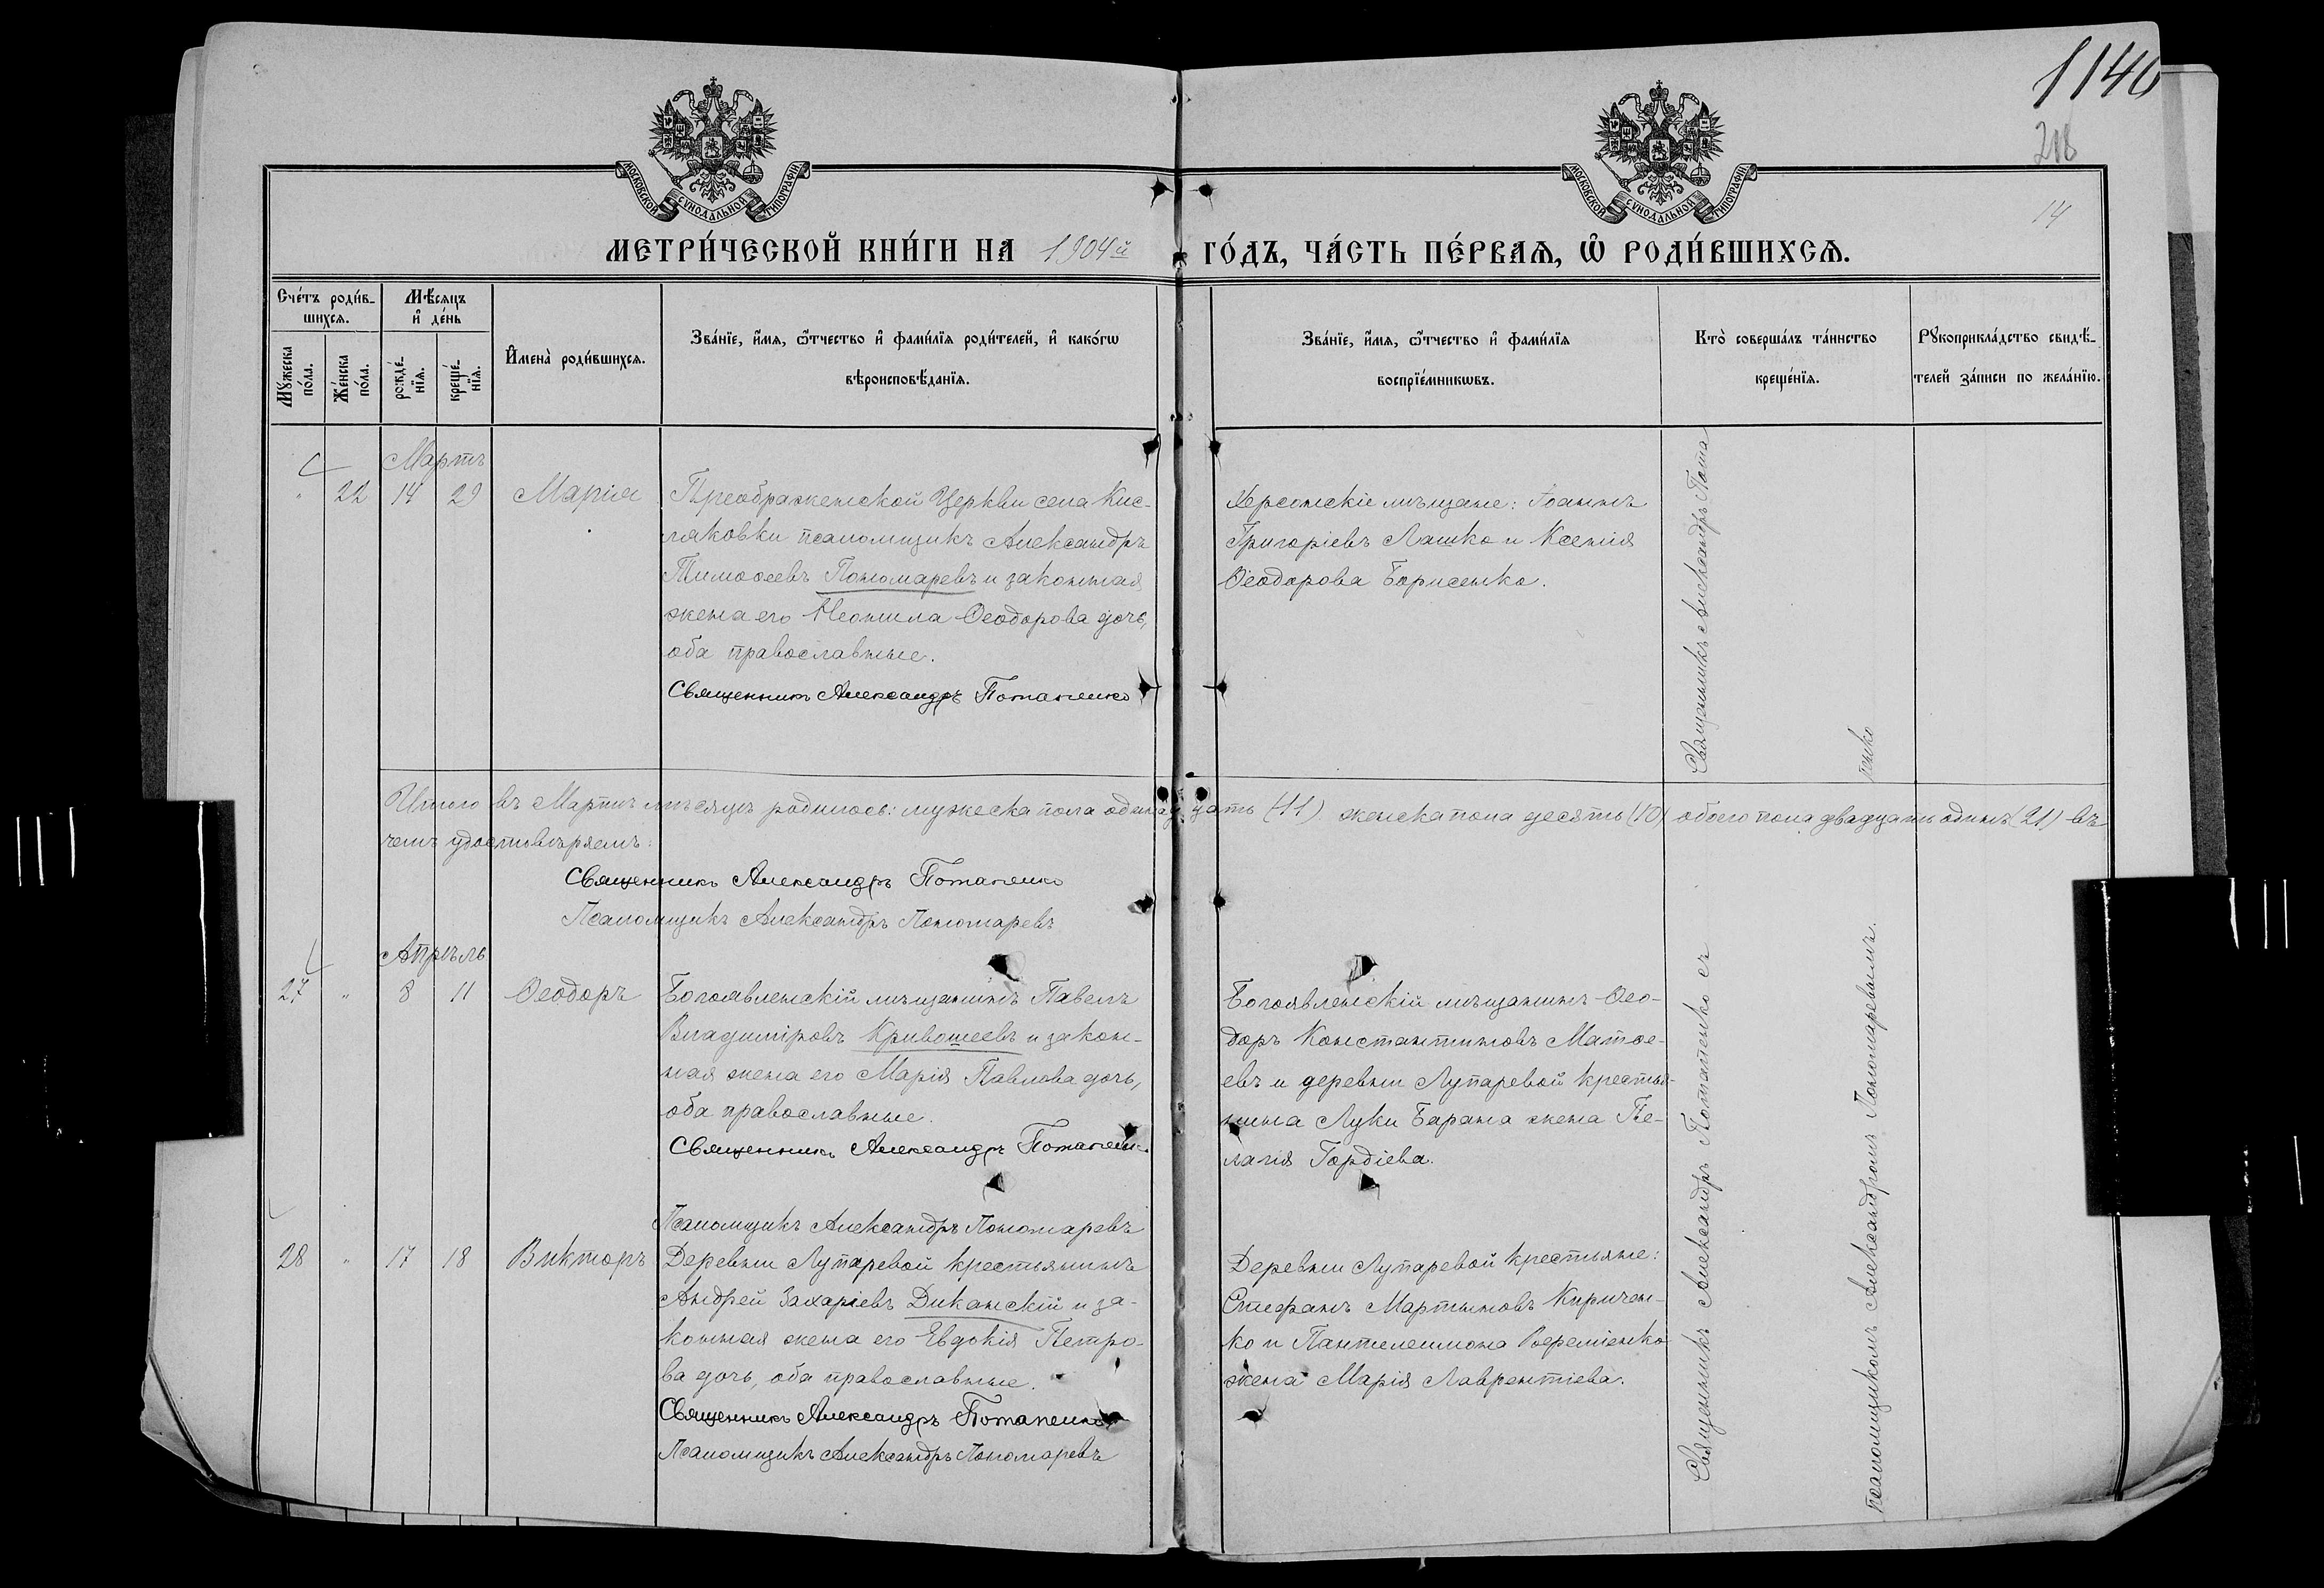 1140
218
14
МОСКОВСКОЙ СѴНОДАЛЬНОЙ ТИПОГРАФІИ
МОСКОВСКОЙ СѴНОДАЛЬНОЙ ТИПОГРАФІИ
МЕТРИ́ЧЕСКОЙ КНИ́ГИ НА 1904й ГО́ДЪ, ЧА́СТЬ ПЕ́РВАЯ, Ѡ РОДИ́ВШИХСЯ.
Сче́тъ роди́в-
шихся.
Мѣ́сяцъ
и де́нь
Мꙋ́жеска
по́ла.
Же́нска
по́ла.
рожде́-
нїя.
креще́-
нїя.
Имена̀ роди́вшихся.
Зва́нїе, и́мя, ѻ́тчество и фами́лїя роди́телей, и како́гѡ
вѣроисповѣ́данїя.
Зва́нїе, и́мя, ѻ́тчество и фами́лїя
воспрїе́мникѡвъ.
Кто̀ соверша́лъ та́инство
креще́нїя.
Рꙋкоприкла́дство свидѣ́-
телей за́писи по жела́нїю.
Мартъ
" 22 14 29 Марія
Преображенской Церкви села Кис-
ляковки псаломщикъ Александръ
Тимоѳеевъ Пономаревъ и законная
жена его Неонила Ѳеодорова дочь,
оба православные.
Священникъ Александръ Потапенко
Херсонскіе мѣщане: Іоаннъ
Григоріевъ Лашко и Ксенія
Ѳеодорова Борисенко.
Священникъ Александръ Пота
пенко
Итого въ Мартѣ мѣсяцѣ родилось: мужеска пола одинадцать (11) женска пола десять (10) обоего пола двадцать одинъ (21) въ
чемъ удостовѣряемъ:
Священникъ Александръ Потапенко
Псаломщикъ Александръ Пономаревъ
Апрѣль
27 " 8 11 Ѳеодоръ
Богоявленскій мѣщанинъ Павелъ
Владиміровъ Кривошеевъ и закон-
ная жена его Марія Павлова дочь,
оба православные.
Священникъ Александръ Потапен
Псаломщикъ Александръ Пономаревъ
Богоявленскій мѣщанинъ Ѳео-
доръ Константиновъ Матѳе-
евъ и деревни Лупаревой крестья-
нина Луки Барана жена Пе-
лагія Гордіева.
28 " 17 18 Викторъ
Деревни Лупаревой крестьянинъ
Андрей Захаріевъ Диканскій и за-
конная жена его Евдокія Петро-
ва дочь, оба православные.
Священникъ Александръ Потапенко
Псаломщикъ Александръ Пономаревъ
Деревни Лупаревой крестьяне:
Стефанъ Мартыновъ Киричен-
ко и Пантелеимона Вереміенко
жена Марія Лаврентіева.
Священникъ Александръ Потапенко съ
псаломщикомъ Александромъ Пономаревымъ.